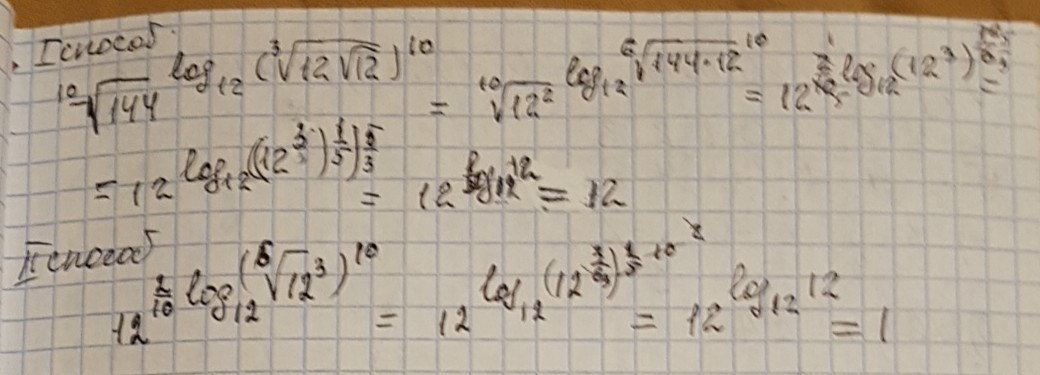 I способ.
¹⁰√144^(log₁₂(³√(12√12))¹⁰) = ¹⁰√12²^(log₁₂ ⁶√(144·12)¹⁰) = 12^(log₁₂(12³)) =
= 12^(log₁₂((12^3)^(1/5))^(5/3)) = 12^(log₁₂12) = 12
II способ
12^(2/10 log₁₂(⁶√12³)¹⁰) = 12^(log₁₂(12^(3/6))^(1/5·10)) = 12^(log₁₂12) = 1